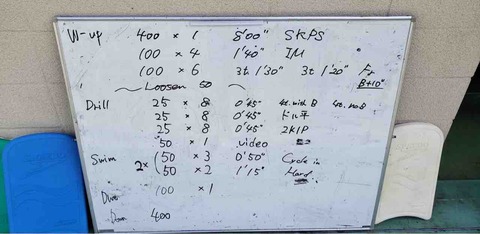 W-up 400 × 1 8'00" SKPS
100 × 4 1'40" IM
100 × 6 3t 1'30" 3t 1'20" Fr
B+10"
Loosen 50
Drill 25 × 8 0'45" 4t. with B 4t. no B
25 × 8 0'45" ドル平
25 × 8 0'45" 2K1P
50 × 1 video
Swim 2× (50 × 3 0'50" Cycle in
50 × 2 1'15" Hard
100 × 1
Down 400